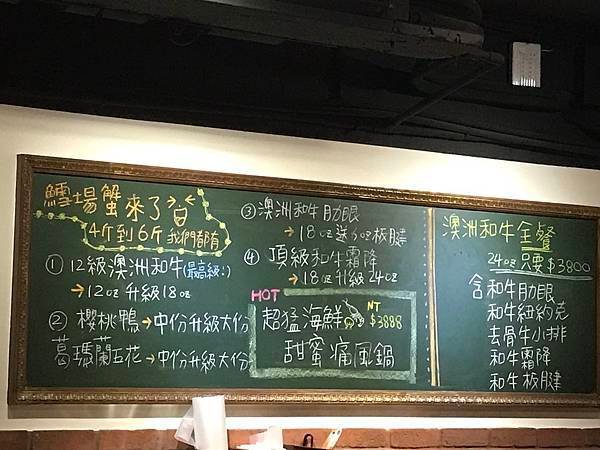 鱈場蟹來了
4斤到6斤 我們都有
① 12級澳洲和牛(最高級:)
→12oz升級18oz
② 櫻桃鴨→中份升級大份
葛瑪蘭五花→中份升級大份
③ 澳洲和牛肋眼
→18oz送6oz板腱
④ 頂級和牛霜降
→18oz升級24oz
HOT
超猛海鮮 NT $3888
甜蜜痛風鍋
澳洲和牛全餐
24oz只要$3800
含和牛肋眼
和牛紐約克
去骨牛小排
和牛霜降
和牛板腱